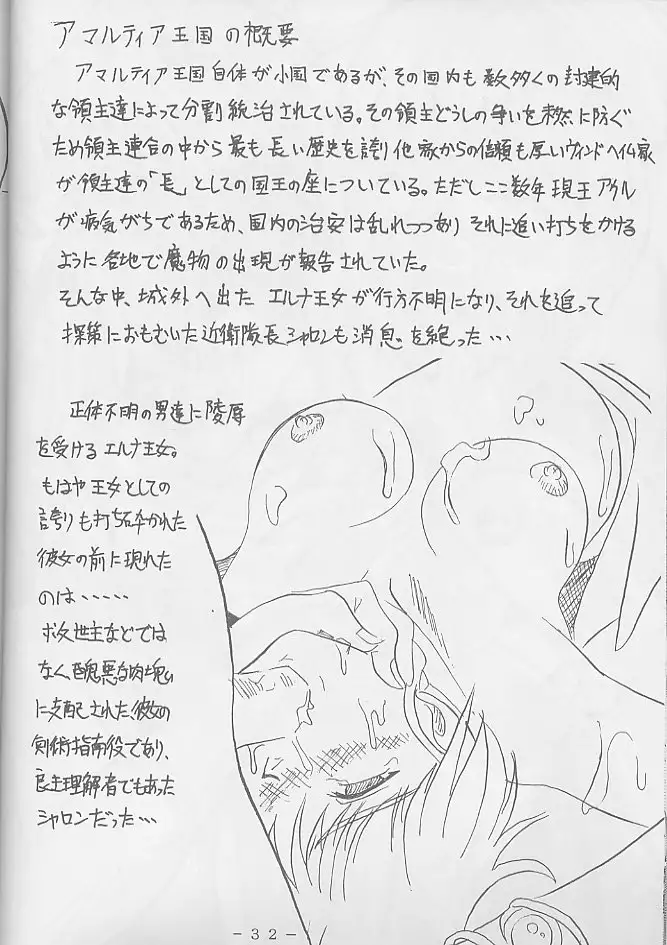 アマルティア王国の概要
アマルティア王国自体が小国であるが、その国内も数多くの封建的
な領主達によって分割統治されている。その領主どうしの争いを未然に防ぐ
ため領主連合の中から最も長い歴史を誇り他家からの信頼も厚いウィンドヘイム家
が領主達の「長」としての国王の座についている。ただしここ数年現王アグル
が病気がちであるため、国内の治安は乱れつつあり それに追い打ちをかける
ように各地で魔物の出現が報告されていた。
そんな中、城外へ出た エルナ王女が行方不明になり、それを追って
探策におもむいた近衛隊長シャロンも消息を絶った…
正体不明の男達に陵辱
を受けるエルナ王女。
もはや王女としての
誇りも打ち砕かれた
彼女の前に現れた
のは……
救世主などでは
なく、醜悪な肉塊
に支配された、彼女の
剣術指南役であり、
良き理解者でもあった
シャロンだった…
-32-